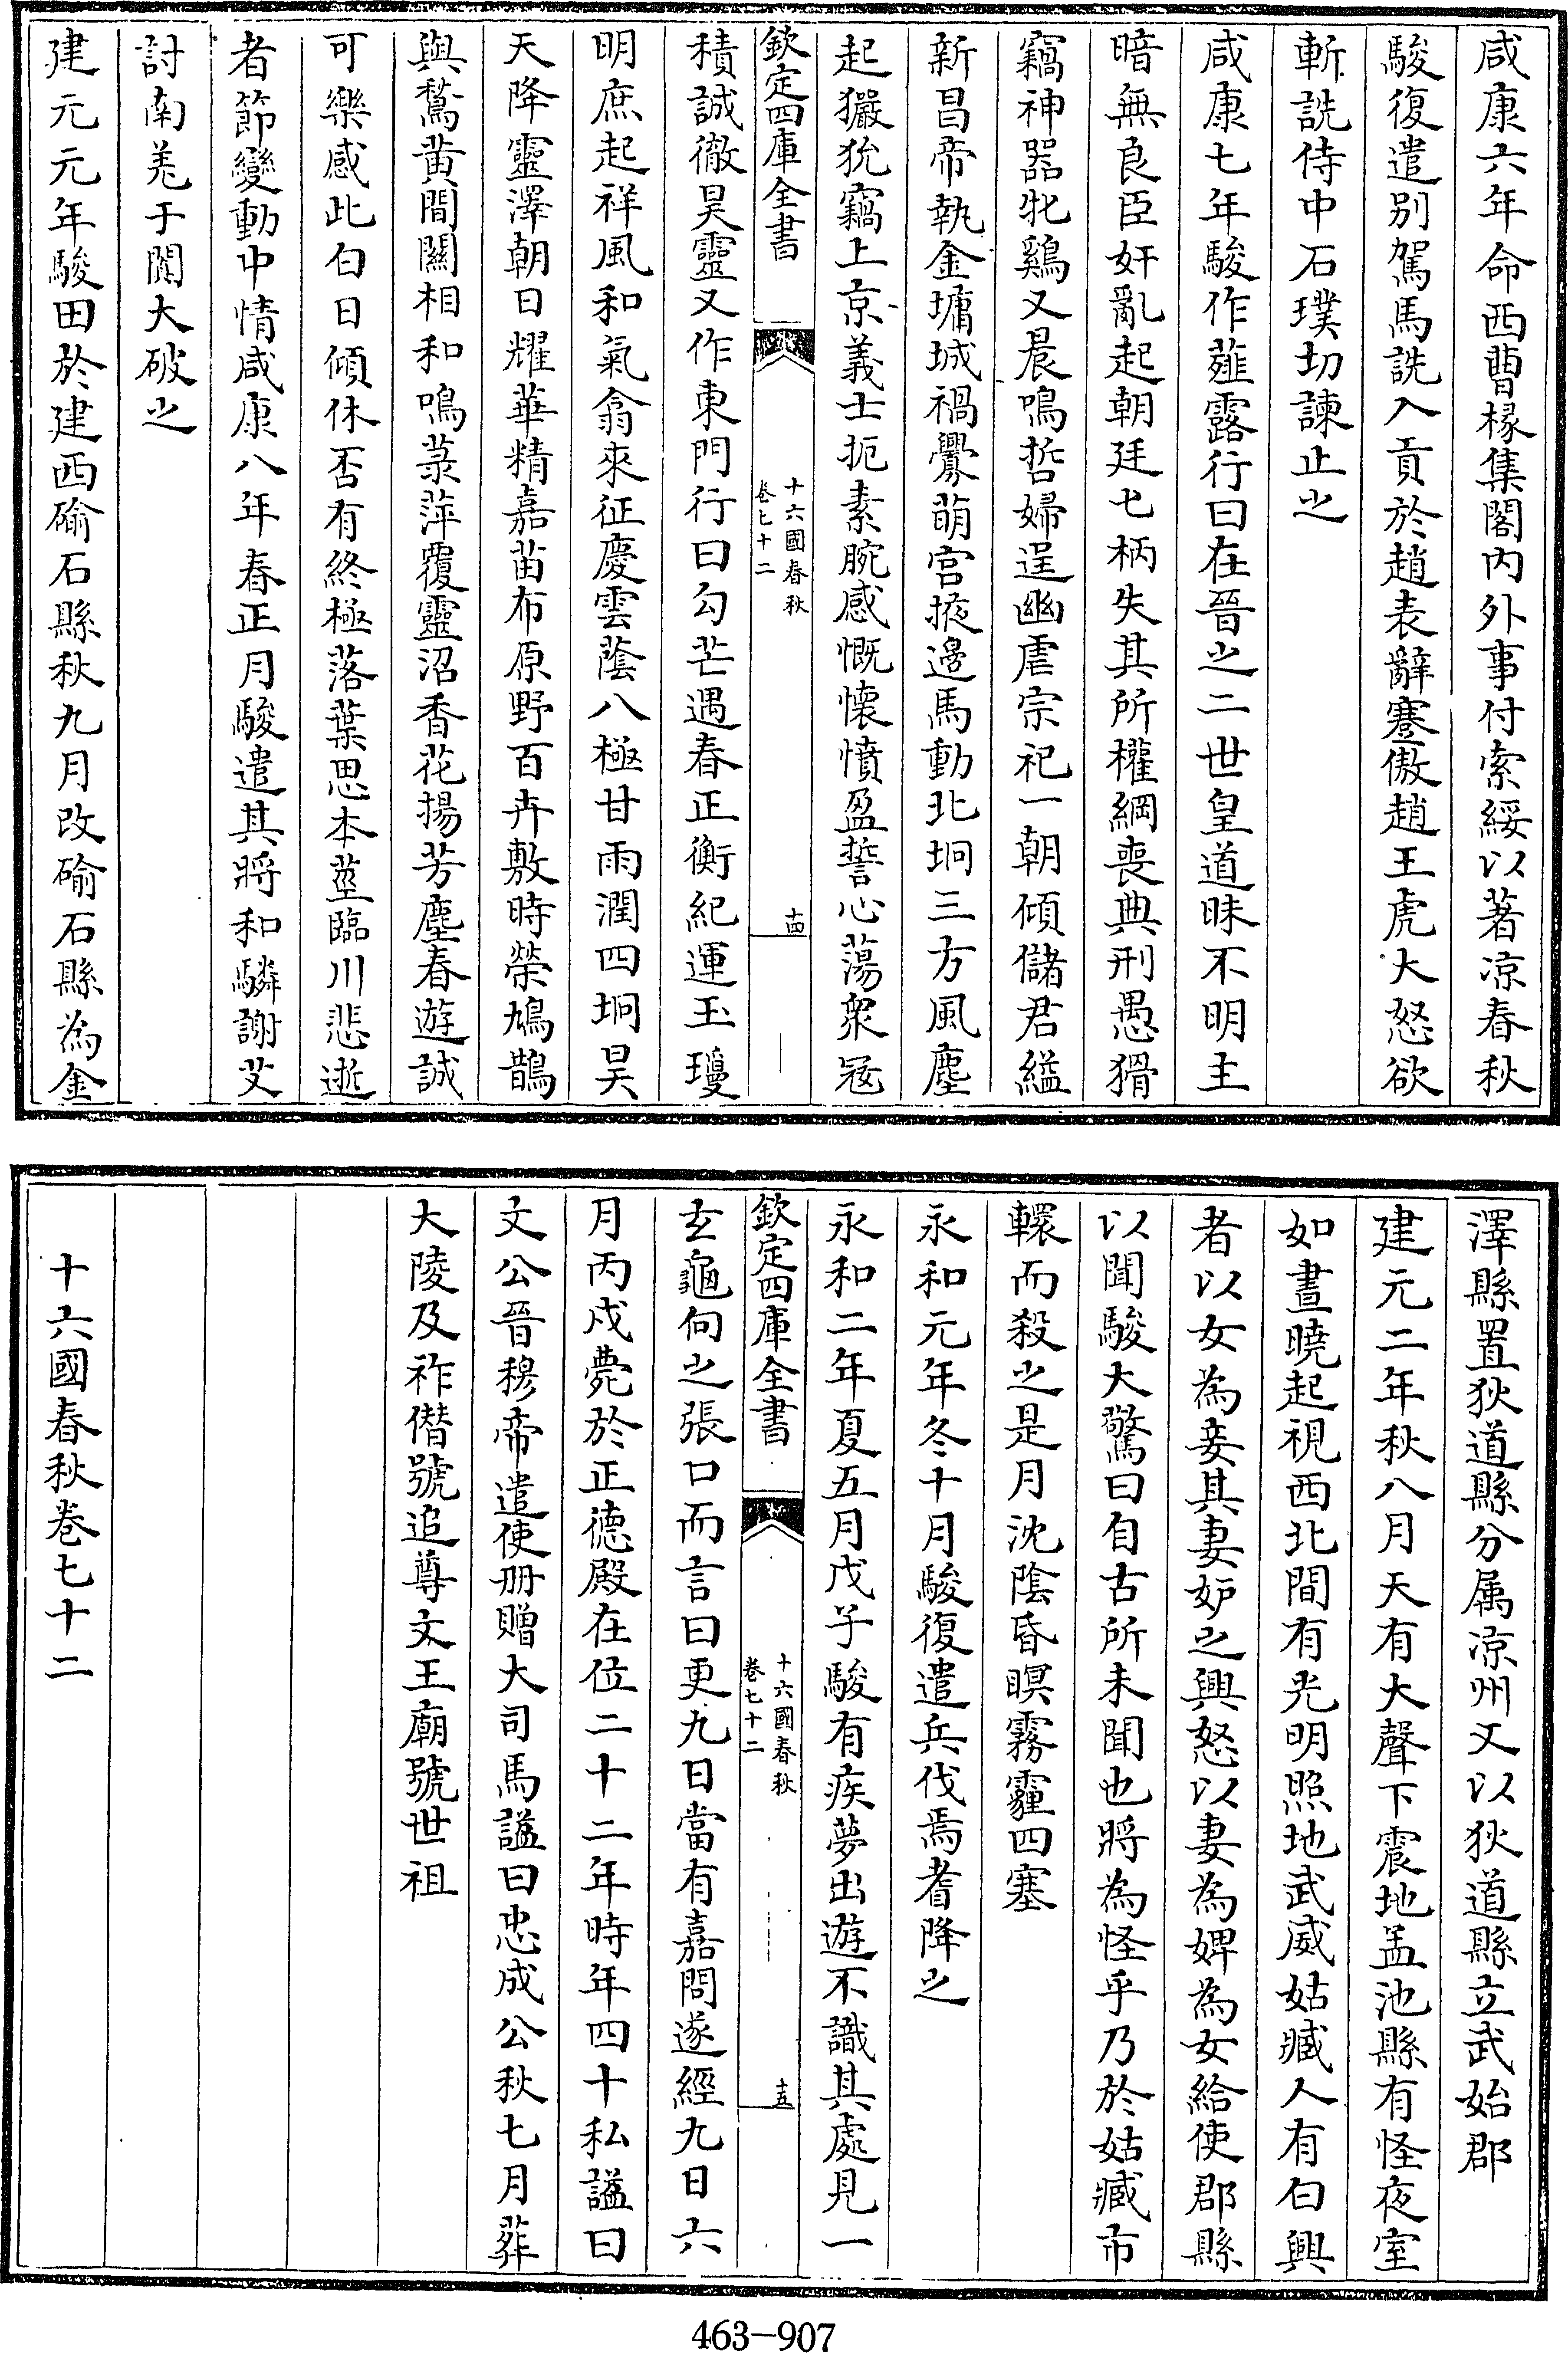 咸康六年命西曹掾集閣内外事付索綏以著凉春秋
駿復遣别駕馬詵入貢於趙表辭蹇傲趙王虎大怒欲
斬詵侍中石璞切諫止之
咸康七年駿作薤露行曰在晉之二世皇道昧不明主
暗無良臣奸亂起朝廷七柄失其所權綱喪典刑愚猾
竊神器牝鷄又晨鳴哲婦逞幽虐宗祀一朝傾儲君縊
新昌帝執金墉城禍釁萌宫掖邊馬動北坰三方風塵
起玁狁竊上京義士扼素腕感慨懐憤盈誓心蕩衆冦
欽定四庫全書
十六國春秋
卷七十二
十四
積誠徹昊靈又作東門行曰勾芒遇春正衡紀運玉瓊
明庶起祥風和氣翕來征慶雲蔭八極甘雨潤四坰昊
天降靈澤朝日耀華精嘉苗布原野百卉敷時榮鳩鵲
與鶖黄間關相和鳴菉萍覆靈沼香花揚芳塵春遊誠
可樂感此白日傾休否有終極落葉思本莖臨川悲逝
者節變動中情咸康八年春正月駿遣其將和驎謝艾
討南羌于闐大破之
建元元年駿田於建西碖石縣秋九月改碖石縣為金
澤縣置狄道縣分属凉州又以狄道縣立武始郡
建元二年秋八月天有大聲下震地孟池縣有怪夜室
如晝曉起視西北間有光明照地武威姑臧人有白興
者以女為妾其妻妒之興怒以妻為婢為女給使郡縣
以聞駿大驚曰自古所未聞也將為怪乎乃於姑臧市
轘而殺之是月沈陰昏暝霧霾四塞
永和元年冬十月駿復遣兵伐焉耆降之
永和二年夏五月戊子駿有疾夢出遊不識其處見一
欽定四庫全書
十六國春秋
卷七十二
十五
玄龜向之張口而言曰更九日當有嘉問遂經九日六
月丙戌薨於正德殿在位二十二年時年四十私諡曰
文公晉穆帝遣使册贈大司馬諡曰忠成公秋七月葬
大陵及祚僭號追尊文王廟號世祖
十六國春秋卷七十二
463-907